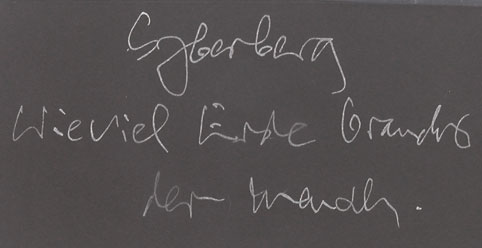 Syberberg
Wieviel Erde braucht
der Mensch.